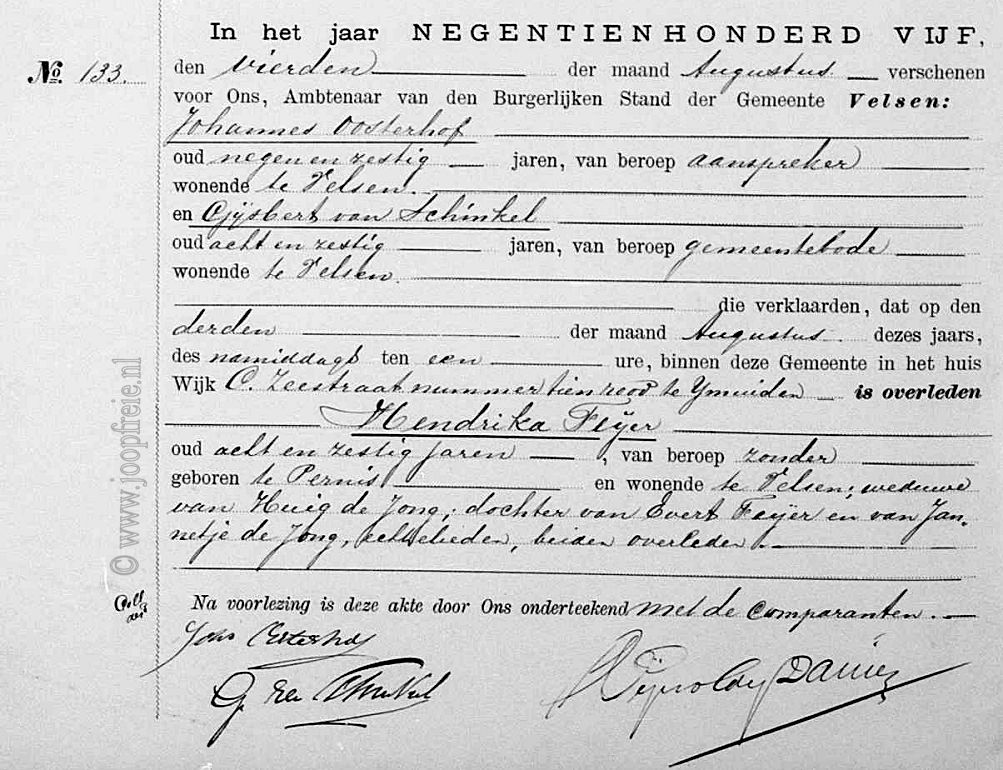 In het jaar NEGENTIENHONDERD VIJF,
No 133.
den vierden der maand Augustus. verschenen
voor Ons, Ambtenaar van den Burgerlijken Stand der Gemeente Velsen:
Johannes Oosterhof
oud negen en zestig jaren, van beroep aanspreker
wonende te Velsen.
en Gijsbert van Schinkel
oud acht en zestig jaren, van beroep gemeentebode
wonende te Velsen.
die verklaarden, dat op den
derden der maand Augustus. dezes jaars,
des namiddags ten een ure, binnen deze Gemeente in het huis
Wijk C. Zeestraat nummer tien rood te Ymuiden is overleden
Hendrika Feijer
oud acht en zestig jaren, van beroep zonder
geboren te Pernis en wonende te Velsen; weduwe
van Huig de Jong; dochter van Evert Feijer en van Jan-
netje de Jong, echtelieden, beiden overleden.
Na voorlezing is deze akte door Ons onderteekend met de comparanten.
Joh's Oosterhof
G. van Schinkel
© www.joopfreie.nl